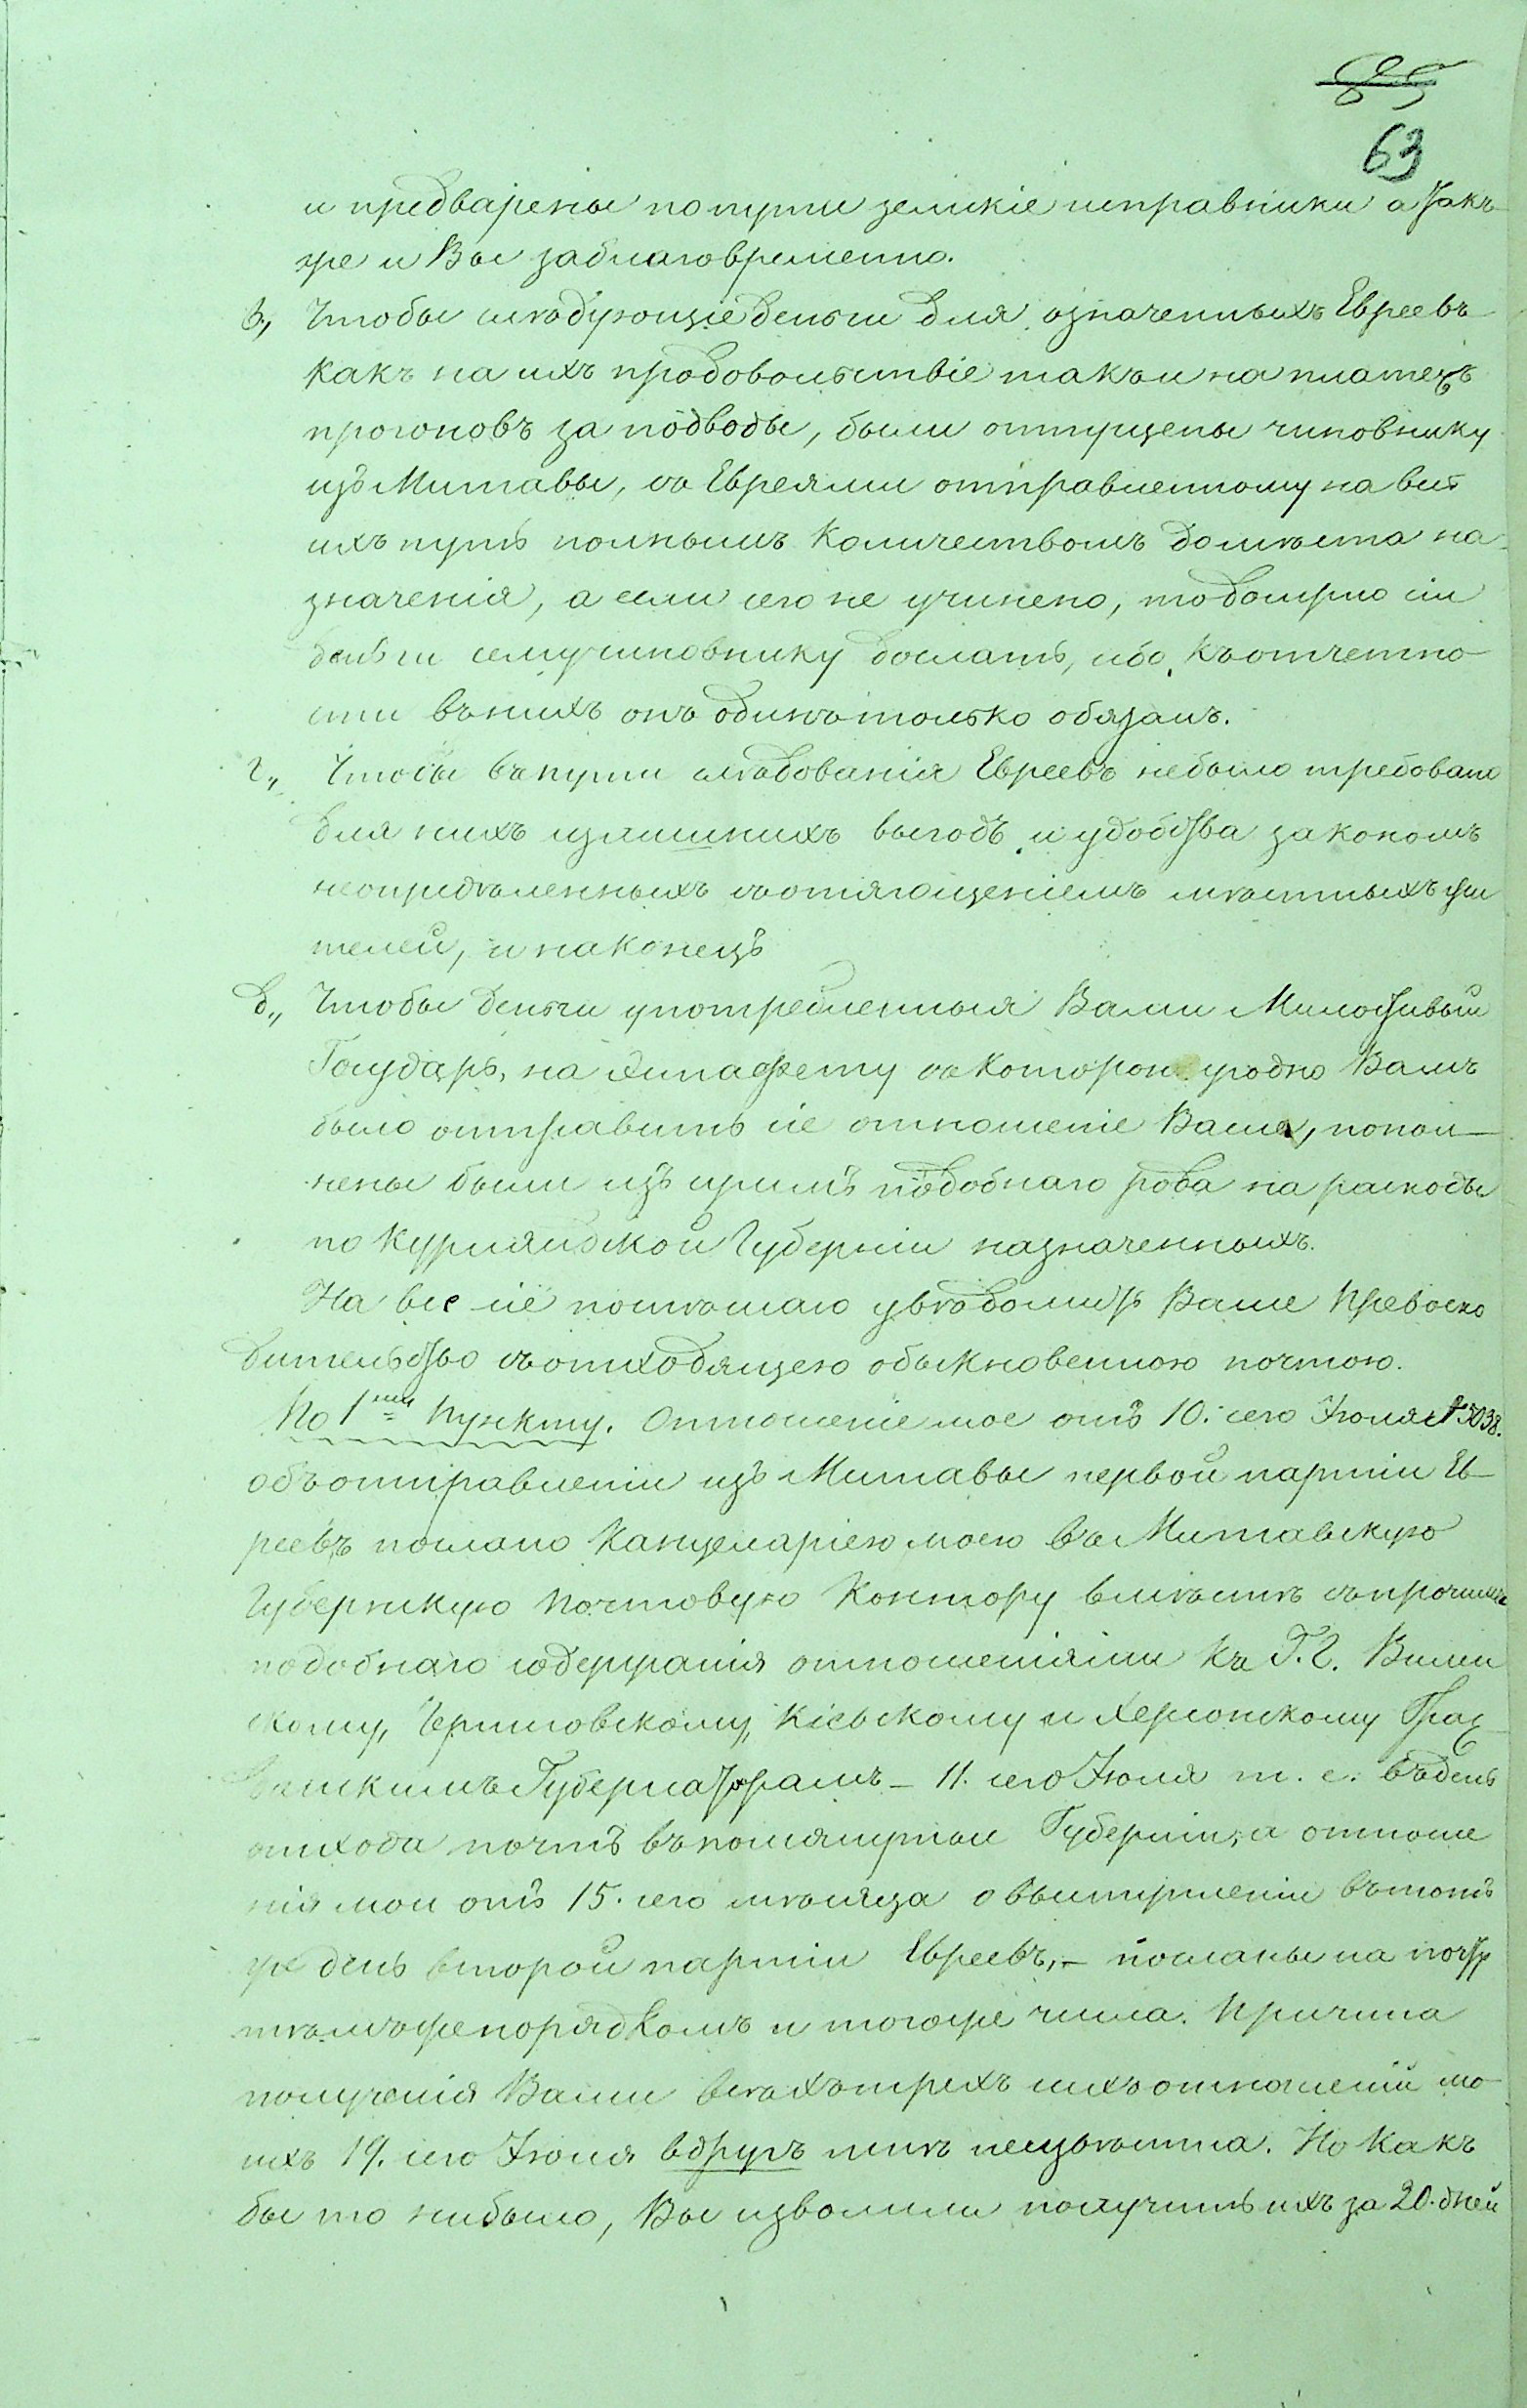 65
63
и предварены по пути земскіе исправники а такъ
же и Вы заблаговременно.
в,, Чтобы слѣдующіе деньги для означенныхъ Евреевъ
какъ на ихъ продовольствіе такъ и на платежъ
прогоновъ за подводы, были отпущены чиновнику
изъ Митавы, съ Евреями отправленному на весь
ихъ путь полнымъ количествомъ до мѣста на-
значенія, а если сего не учинено, то должно сіи
деньги сему чиновнику дослать, ибо къ отчетно-
сти въ нихъ онъ одинъ только обязанъ.
г,, Чтобы въ пути слѣдованія Евреевъ не было требовано
для нихъ излишнихъ выгодъ и удобства закономъ
неопредѣленныхъ съ отягощеніемъ мѣстныхъ жи
телей, и наконецъ
д,, Чтобы деньги употребленныя Вами Милостивый
Государь, на Эштафету съ которою угодно Вамъ
было отправить сіе отношеніе Ваше, попол-
нены были изъ суммъ подобнаго рода на расходы
по Курляндской Губерніи назначенныхъ.
На все сіе поспѣшаю увѣдомить Ваше Превосхо
дительство съ отходящею обыкновенною почтою.
По 1му пункту. Отношеніе мое отъ 10. сего Іюля № 5038.
объ отправленіи изъ Митавы первой партіи Ев-
реевъ послано Канцеляріею моею въ Митавскую
Губернскую Почтовую Контору вмѣстѣ съ прочими
подобнаго содержанія отношеніями къ Г.Г. Вилен
скому, Черниговскому, Кіевскому и Херсонскому Граж-
данскимъ Губернаторамъ - 11. сего Іюля т. е. въ день
отхода почтъ въ помянутыя Губерніи; а отноше
нія мои отъ 15. сего мѣсяца о выступленіи въ тотъ
же день второй партіи Евреевъ, - посланы на почту
тѣмъ же порядкомъ и того же числа. Причина
полученія Вами всѣхъ трехъ сихъ отношеній мо-
ихъ 19. сего Іюля вдругъ мнѣ неизвѣстна. Но какъ
бы то ни было, Вы изволили получить ихъ за 20. дней